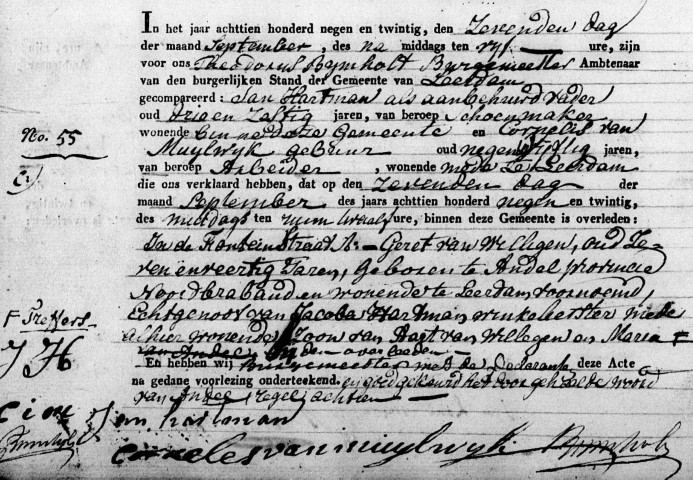 In het jaar achttien honderd negen en twintig, den Zevenden dag
der maand September, des na middags ten vyf ure, zijn
voor ons Theodorus Bijmholt Burgemeester Ambtenaar
van den burgerlijken Stand der Gemeente van Leerdam
gecompareerd: Jan Hartman als aanbehuwd vader
oud drie en Zestig jaren, van beroep Schoenmaker
wonende binnen deze Gemeente en Cornelis van
No. 55
Muylwyk gebuur oud negen Vyftig jaren,
van beroep Arbeider, wonende mede te Leerdam
die ons verklaard hebben, dat op den Zevenden dag der
maand September des jaars achttien honderd negen en twintig,
des middags ten ruim twaalf ure, binnen deze Gemeente is overleden:
In de Fonteinstraat A: Geret van Willegen, oud Ze-
ven en veertig Jaren, Geboren te Andel provincie
Noordbraband en wonende te Leerdam voornoemd,
Echtgenoot van Jacoba Hartman winkelierster mede
F Treffers
alhier wonende Zoon van Aart van Willegen en Maria F
J H
van Andel, beiden overleden
En hebben wij Burgemeester met de Declarante deze Acte
na gedane voorlezing onderteekend. en goedgekeurd het doorgehaalde woord
van Andel, regel achtien
Jan hartman
Corneles van muylwyk Bijmholt